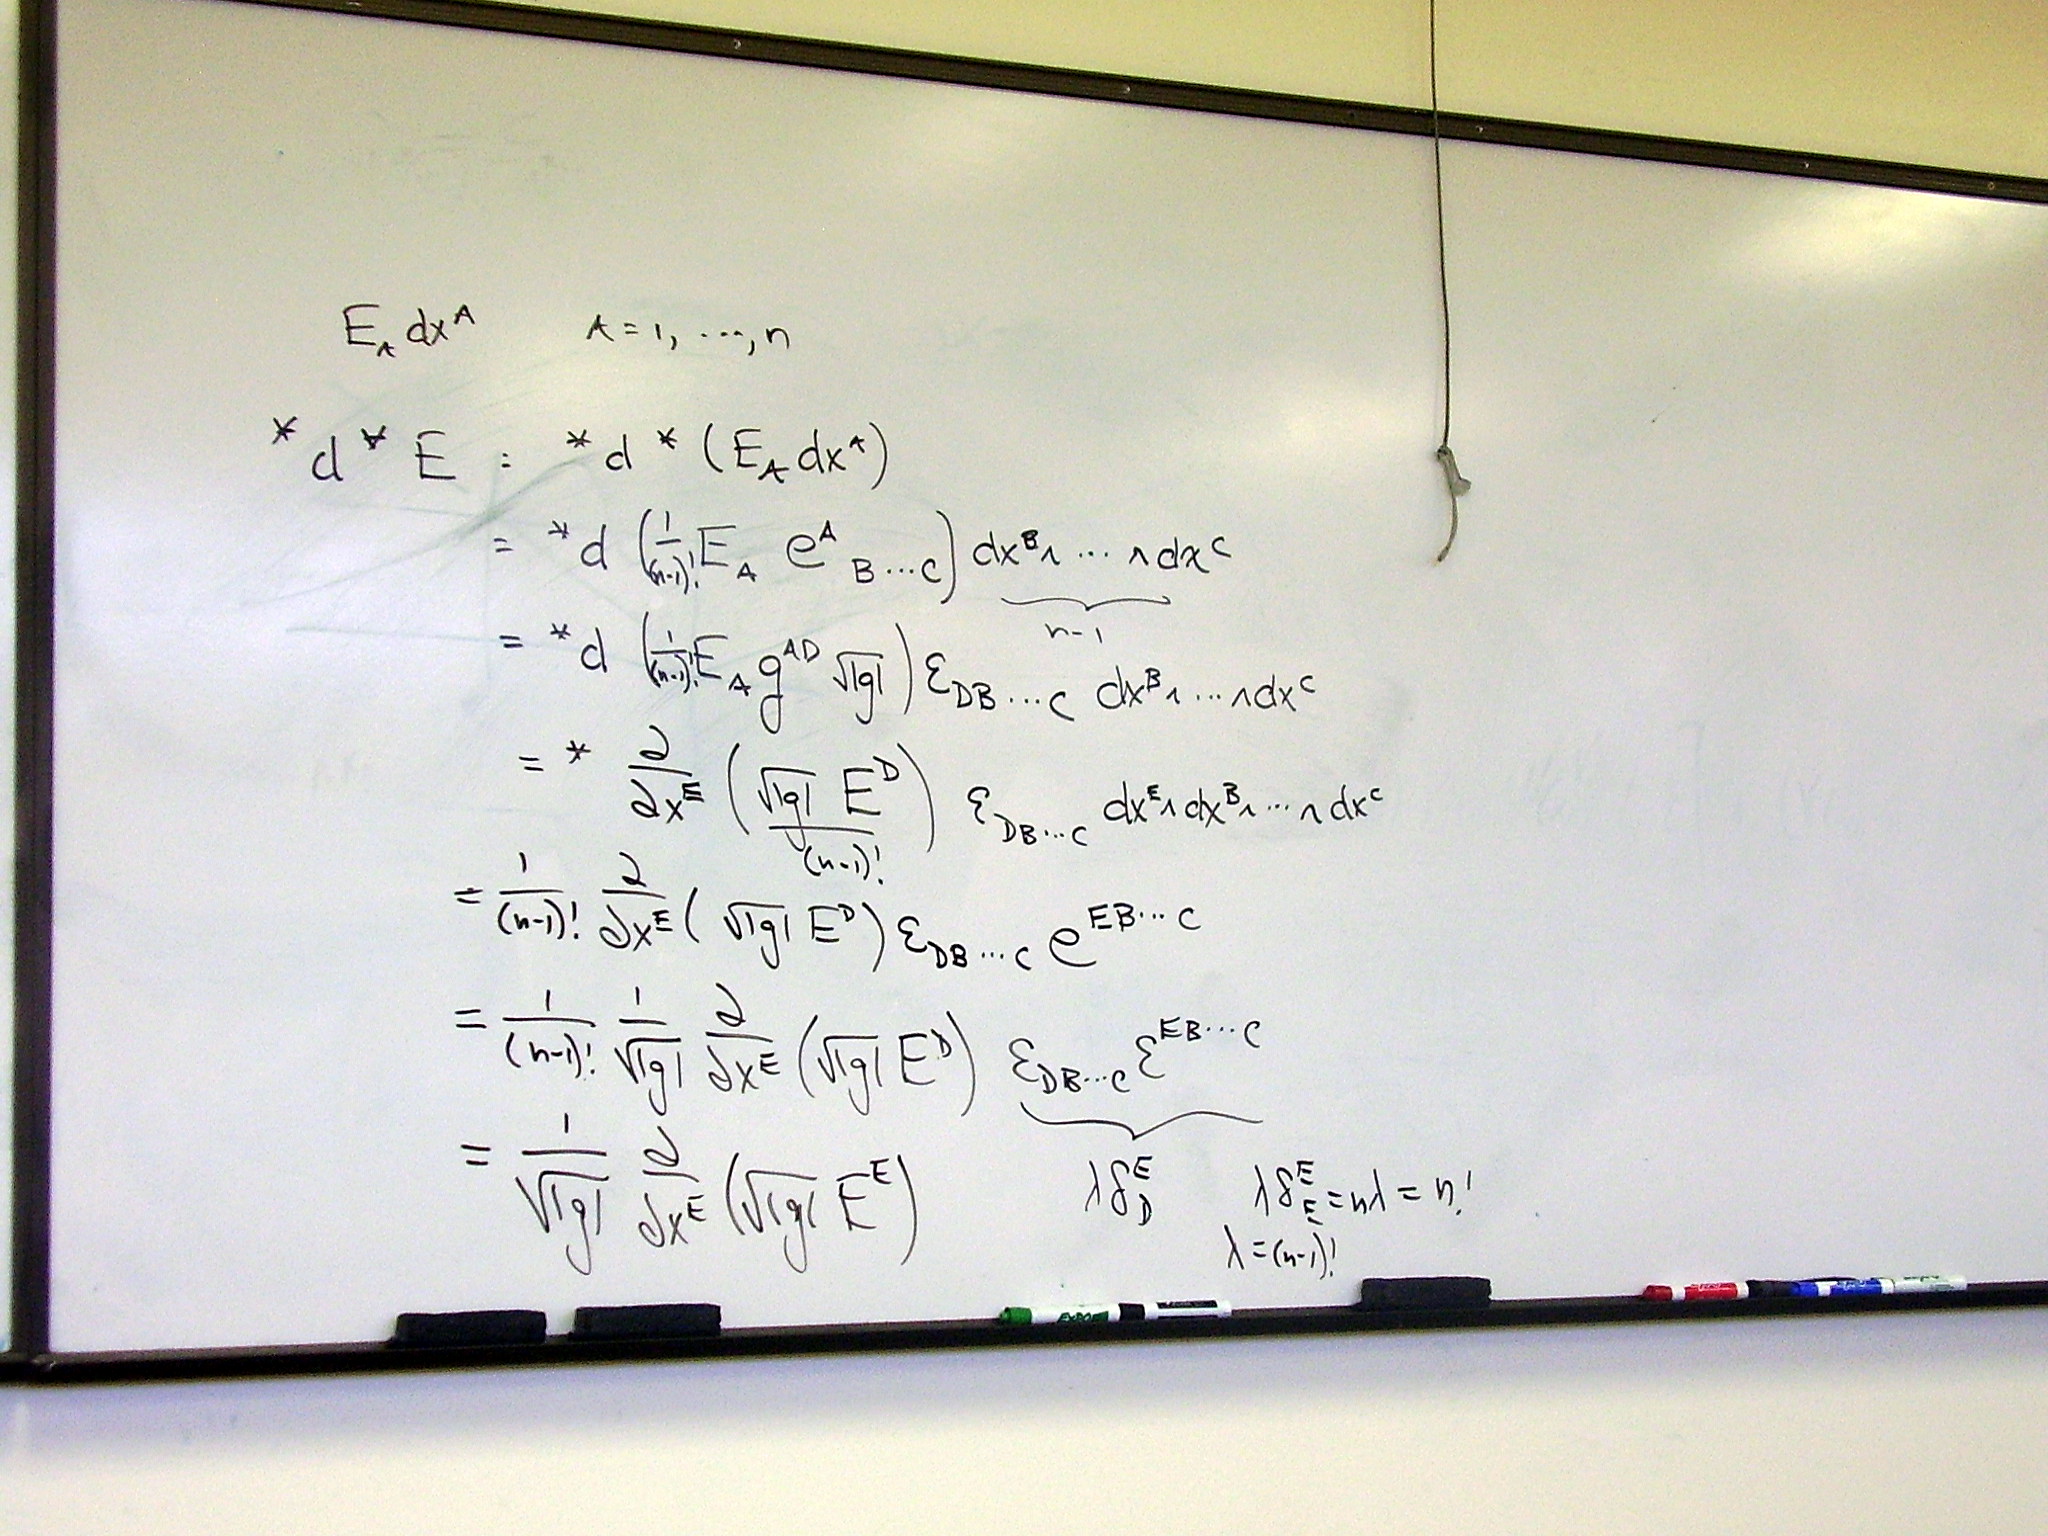 E_A dx^A    A = 1, ..., n
*d*E = *d*(E_A dx^A)
= *d (1/(n-1)! E_A e^A_{B...C}) dx^B ∧ ... ∧ dx^C
n-1
= *d (1/(n-1)! E_A g^{AD} √|g|) ε_{DB...C} dx^B ∧ ... ∧ dx^C
= * ∂/∂x^E (√|g| E^D/(n-1)!) ε_{DB...C} dx^E ∧ dx^B ∧ ... ∧ dx^C
= 1/(n-1)! ∂/∂x^E (√|g| E^D) ε_{DB...C} e^{EB...C}
= 1/(n-1)! 1/√|g| ∂/∂x^E (√|g| E^D) ε_{DB...C} ε^{EB...C}
= 1/√|g| ∂/∂x^E (√|g| E^E)    λδ^E_D    λδ^E_E = nλ = n!
λ = (n-1)!
EXPO